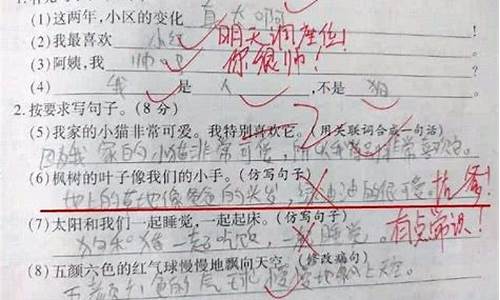 (1)这两年,小区的变化真大啊
(2)我最喜欢小红 明天调座位!
(3)阿姨,我帅吧 你很帅!
(4)我是人,不是狗
2.按要求写句子。(8分)
(5)我家的小猫非常可爱。我特别喜欢它。(用关联词合成一句话)
因为我家的小猫非常可爱,所以我非常喜欢它。
(6)枫树的叶子像我们的小手。(仿写句子)
地上的草地像爸爸的头发,绿油油的很可爱。
(7)太阳和我们一起睡觉,一起起床。(仿写句子)
狗和猪一起吃饭,一起睡觉。有点常识!
(8)五颜六色的红气球慢慢地飘向天空。(修改病句)
五颜六色的气球慢慢地飘上天空。